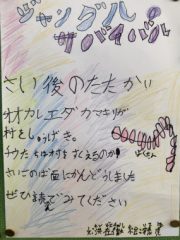 ジャングル
サバイバル
さい後のたたかい
オオカレエダカマキリが
村をしゅうげき。
チウたちは村をすくえるのか
さいごの場面にかんどうしました
ぜひ読んでみてください